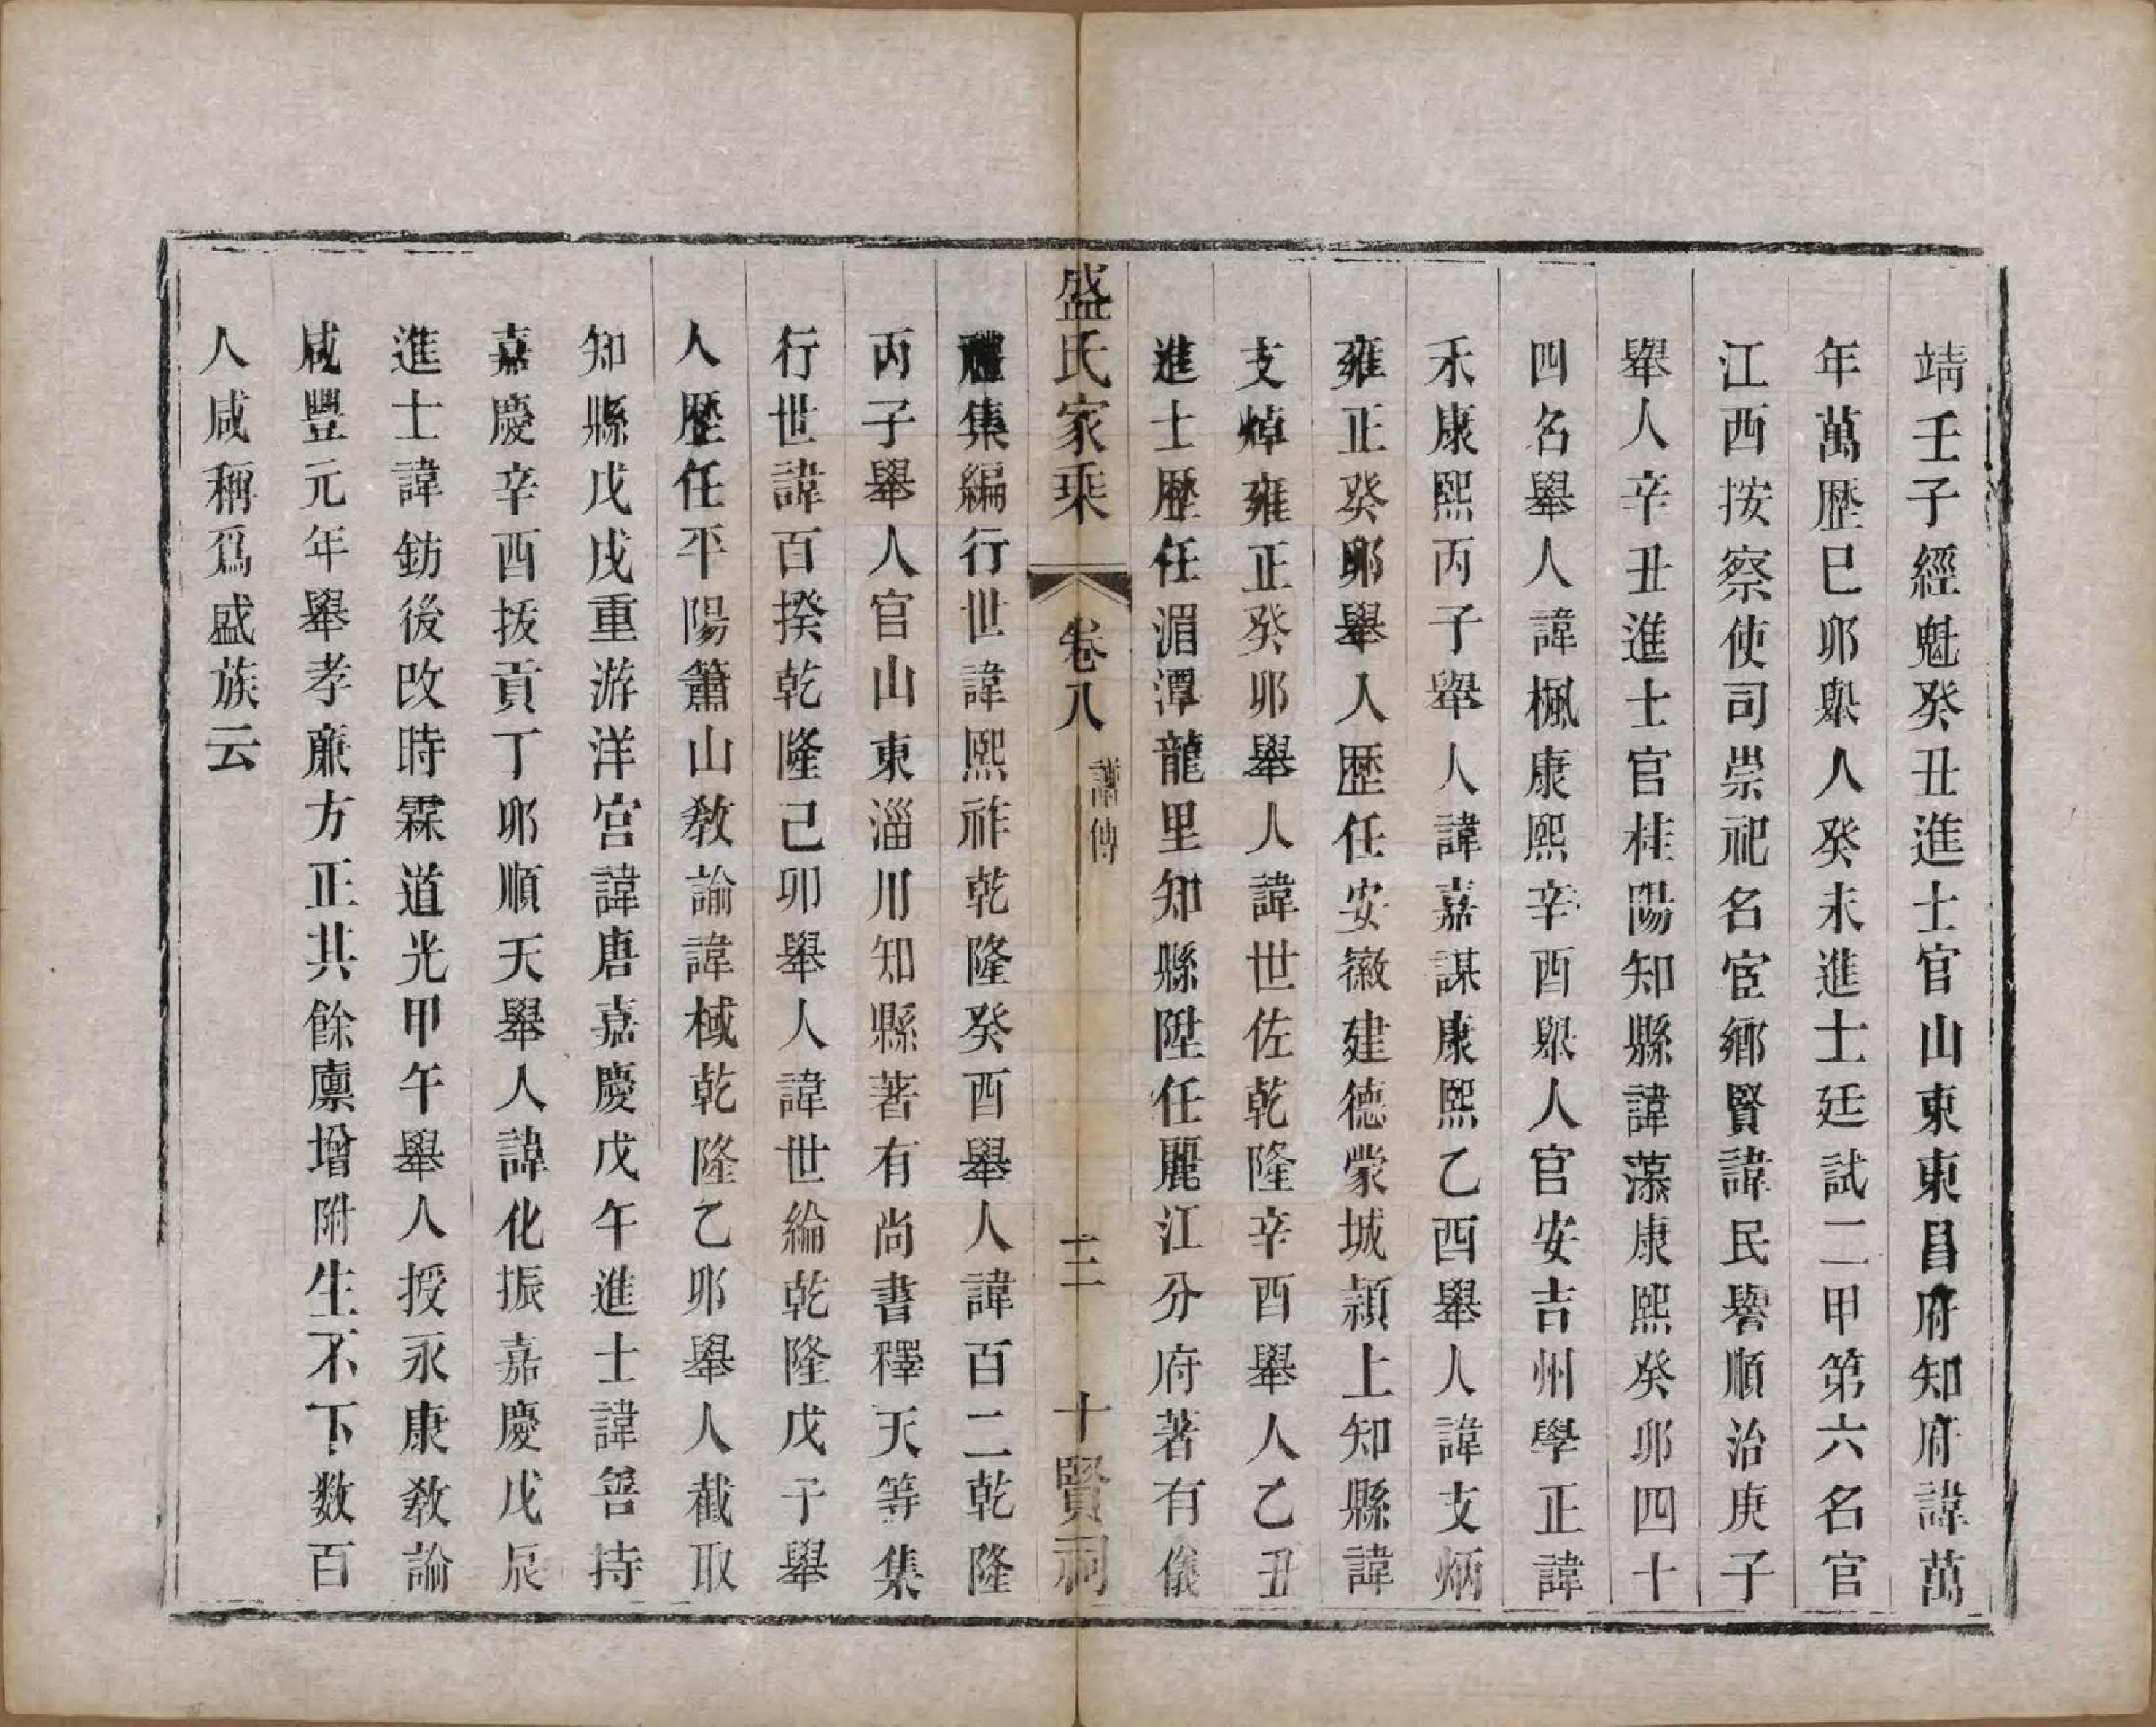 靖壬子經魁癸丑進士官山東東昌府知府諱萬
年萬歴巳卯舉人癸未進士廷試二甲第六名官
江西按察使司崇祀名宦鄉賢諱民譽順治庚子
舉人辛丑進士官桂陽知縣諱藻康熙癸卯四十
四名舉人諱楓康熙辛酉舉人官安吉州學正諱
禾康熙丙子舉人諱嘉謀康熙乙酉舉人諱支炳
雍正癸卯舉人歴任安徽建德蒙城潁上知縣諱
支焯雍正癸卯舉人諱世佐乾隆辛酉舉人乙丑
進士歴任湄潭龍里知縣陞任麗江分府著有儀
盛氏家乘 卷八 譜傳 十三 十賢祠
禮集編行世諱熙祚乾隆癸酉舉人諱百二乾隆
丙子舉人官山東淄川知縣著有尚書釋天等集
行世諱百揆乾隆己卯舉人諱世綸乾隆戊子舉
人歴任平陽蕭山教諭諱棫乾隆乙卯舉人截取
知縣戊戌重游洋宮諱唐嘉慶戊午進士諱善持
嘉慶辛酉抜貢丁卯順天舉人諱化振嘉慶戊辰
進士諱鈁後改時霖道光甲午舉人授永康教諭
咸豐元年舉孝廉方正共餘廪增附生不下數百
人咸稱爲盛族云